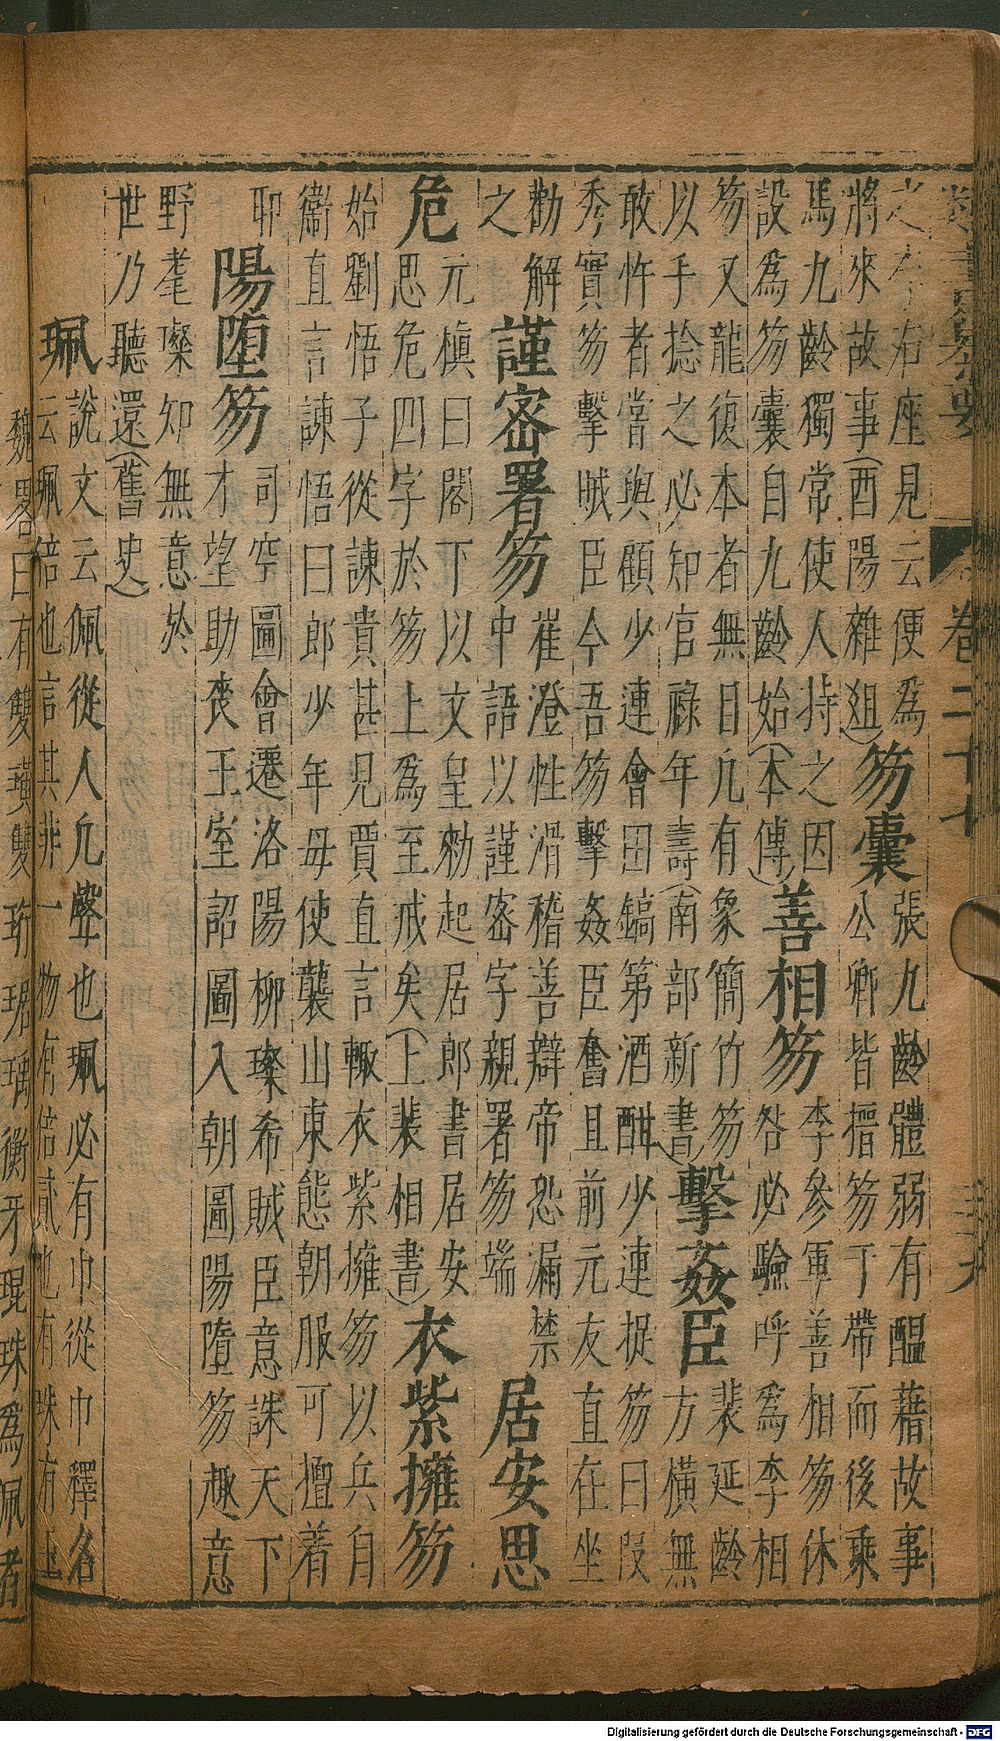 卷二十七
右座見云便爲
將來故事(酉陽雜俎)
笏囊
張九齡體弱有醞藉故事
公卿皆搢笏于帶而後乘
馬九齡獨常使人持之因
設爲笏囊自九齡始(本傳)
善相笏
李參軍善相笏休
咎必驗呼爲李相
笏又龍復本者無目凢有象簡竹笏
以手捻之必知官祿年壽(南部新書)
擊姦臣
裴延齡
方橫無
敢忤者嘗與顧少連會田鎬第酒酣少連挺笏曰段
秀實笏擊賊臣今吾笏擊姦臣奮且前元友直在坐
勸解
之
謹密署笏
崔澄性滑稽善辯帝恐漏禁
中語以謹密字親署笏端
居安思
危
元稹曰閣下以文皇勑起居郎書居安
思危四字於笏上爲至戒矣(上裴相書)
衣紫擁笏
始劉悟子從諫貴甚見賈直言輙衣紫擁笏以兵自
衞直言諫悟曰郎少年毋使襲山東態朝服可擅着
耶
陽墮笏
司空圖會遷洛陽柳璨希賊臣意誅天下
才望助喪王室詔圖入朝圖陽墮笏趣意
野耄璨知無意於
世乃聽還(舊史)
珮
說文云佩從人凢聲也珮必有巾從巾釋名
云珮倍也言其非一物有倍貳也有珠有玉
魏畧曰有雙璜雙珩琚瑀衡牙琨珠爲佩者
Digitalisierung gefördert durch die Deutsche Forschungsgemeinschaft - DFG